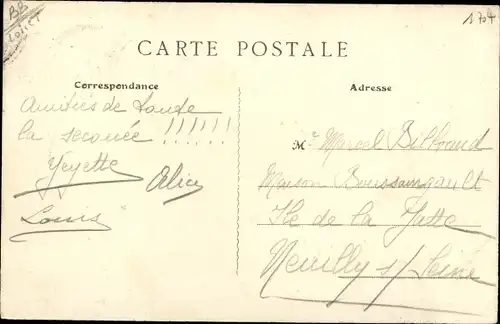 BB
1704
CARTE POSTALE
Correspondance
Adresse
Amitiés de toute
la secouée !!!!!!
Yeyette Alice
Louis
Mr Marcel
Maison Boussaingault
Ile de la Jatte
Neuilly s/ Seine